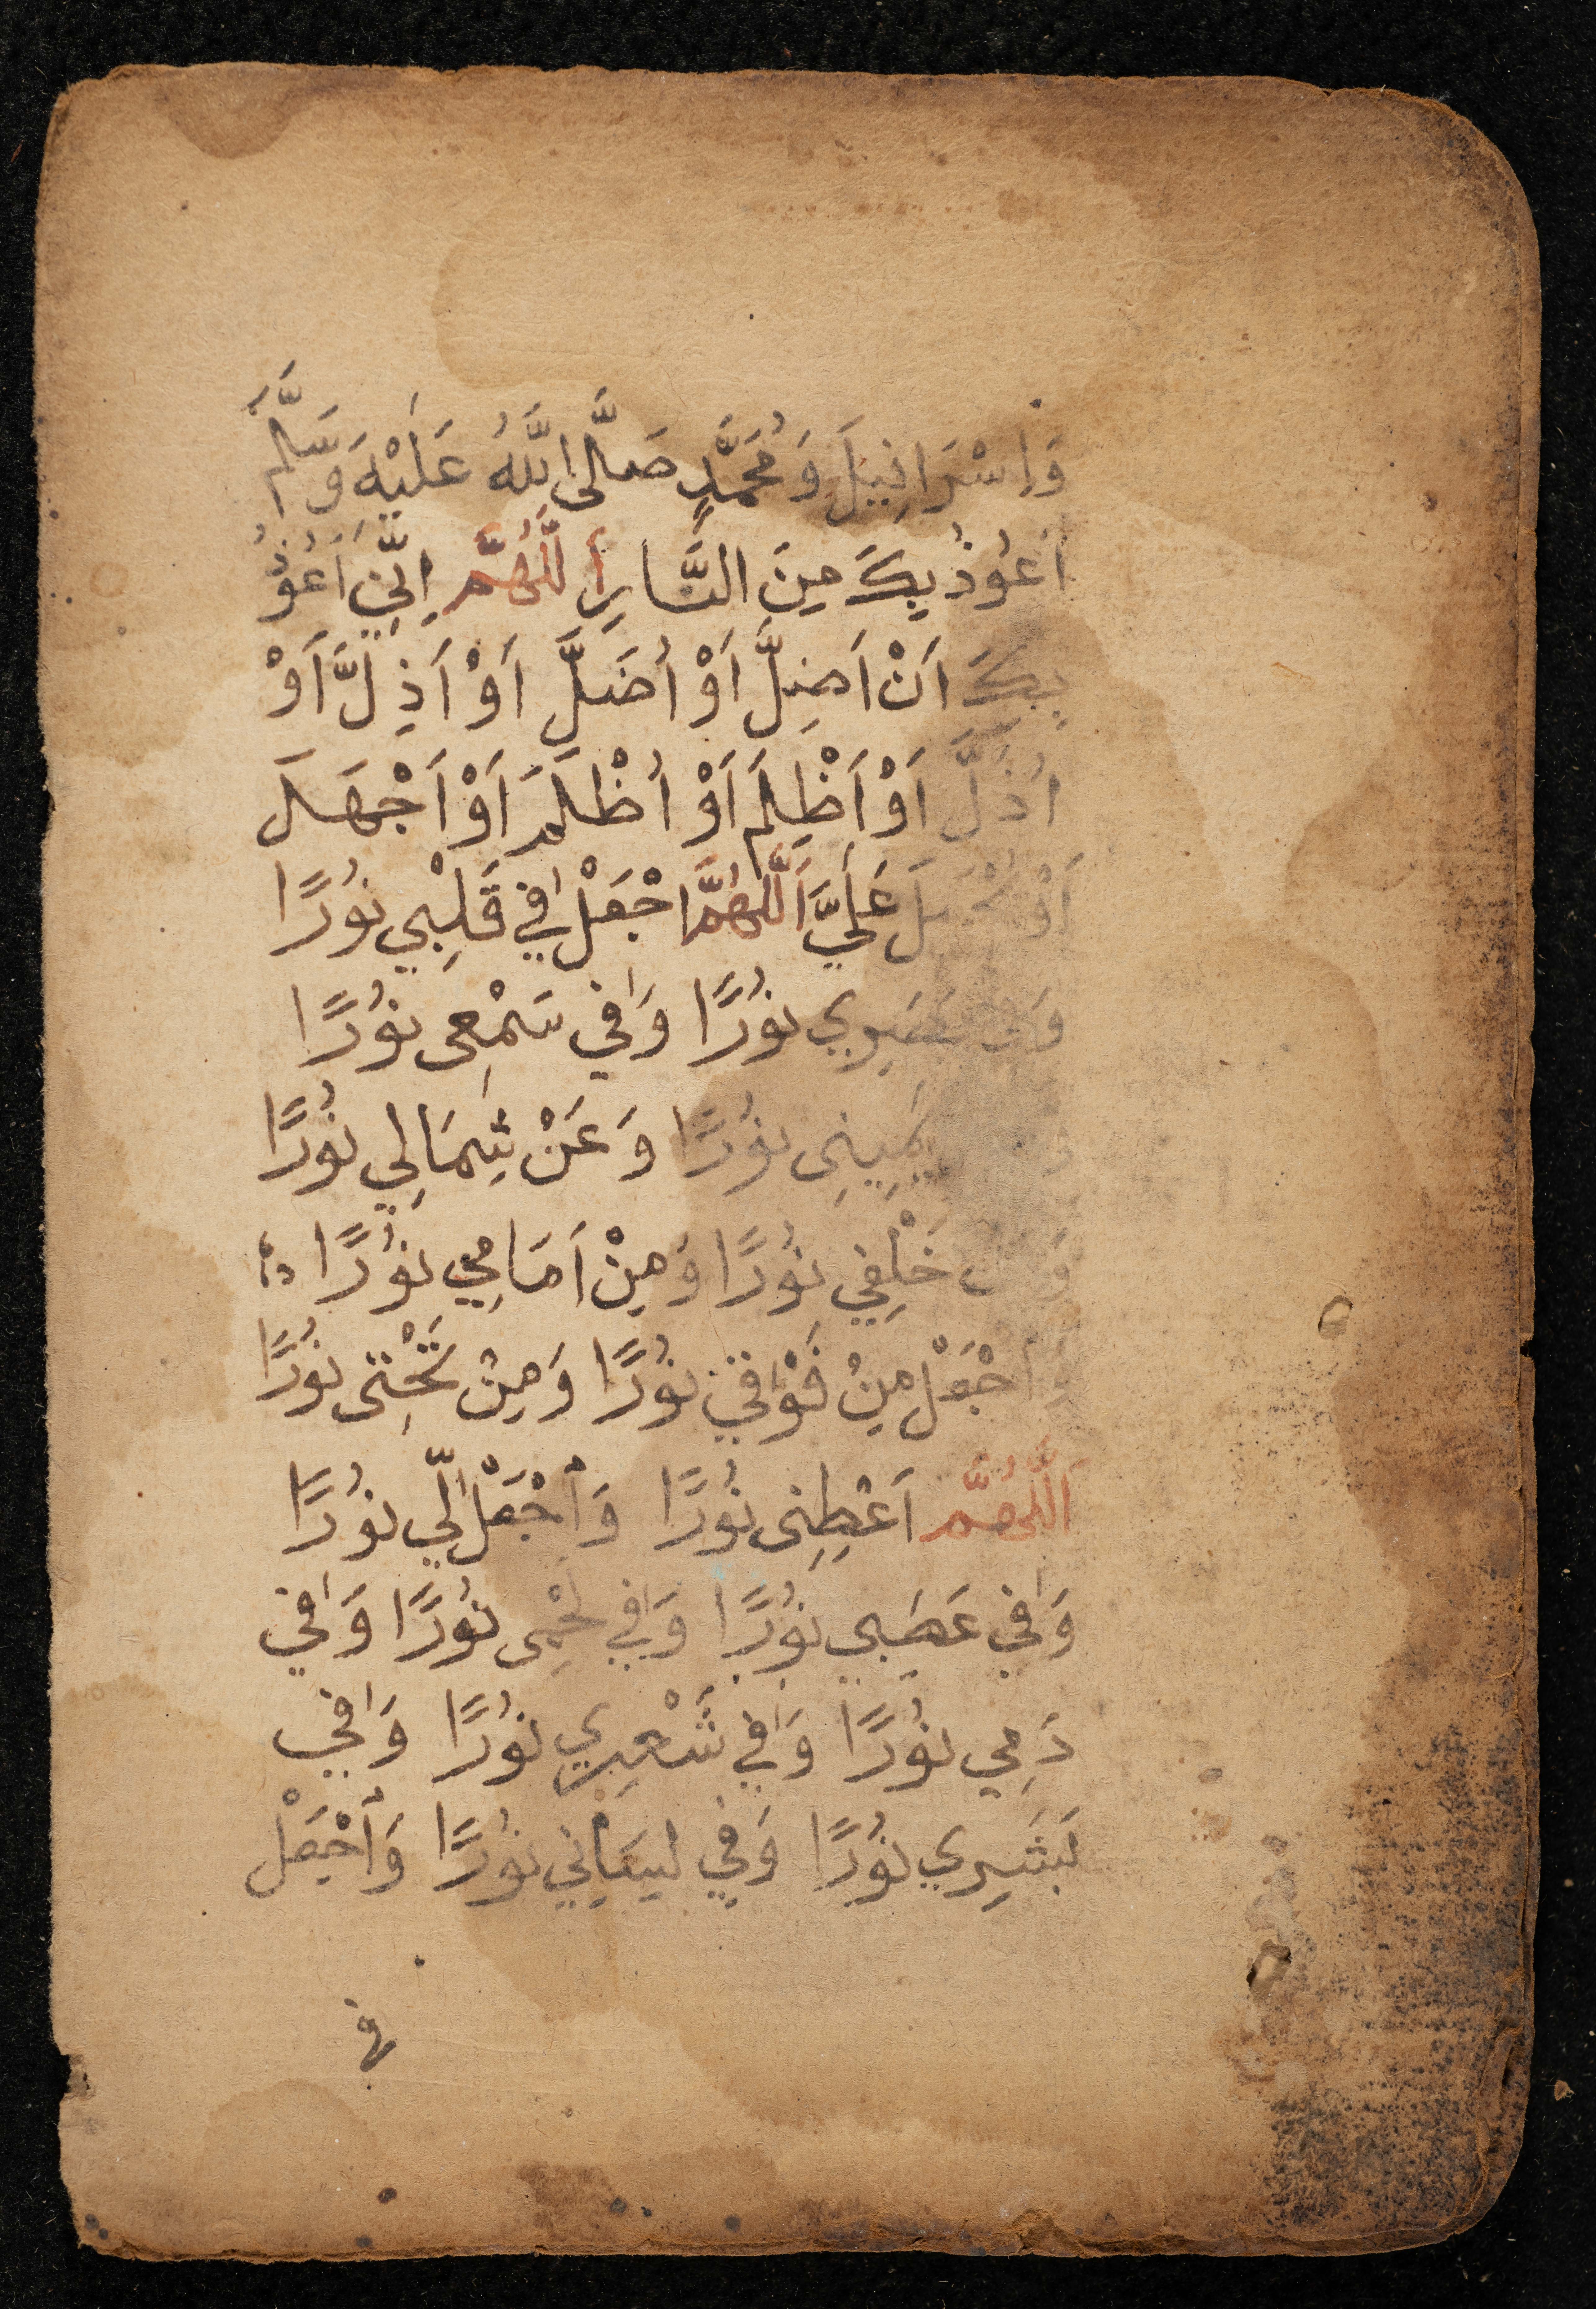 وَاِسْرَافِيلَ وَمُحَمَّدٍ صَلَّى اللَّهُ عَلَيْهِ وَسَلَّمَ
اَعُوْذُ بِكَ مِنَ النَّارِ اَللَّهُمَّ اِنِّي اَعُوْذُ
بِكَ اَنْ اَضِلَّ اَوْ اُضَلَّ اَوْ اَذِلَّ اَوْ
اُذَلَّ اَوْ اَظْلِمَ اَوْ اُظْلَمَ اَوْ اَجْهَلَ
اَوْ عَلَيَّ اَللَّهُمَّ اجْعَلْ فِي قَلْبِي نُوْرًا
بَصَرِي نُوْرًا وَفِي سَمْعِى نُوْرًا
يَمِيْنِى نُوْرًا وَعَنْ شِمَالِي نُوْرًا
خَلْفِي نُوْرًا وَمِنْ اَمَامِي نُوْرًا
وَاجْعَلْ مِنْ فَوْقِي نُوْرًا وَمِنْ تَحْتِى نُوْرًا
اَللَّهُمَّ اَعْطِنِى نُوْرًا وَاجْعَلْ لِّي نُوْرًا
وَفِي عَصَبِي نُوْرًا وَفِي لَحْمِى نُوْرًا وَفِي
دَمِي نُوْرًا وَفِي شَعْرِي نُوْرًا وَفِي
بَشَرِي نُوْرًا وَفِي لِسَانِي نُوْرًا وَاجْعَلْ
في